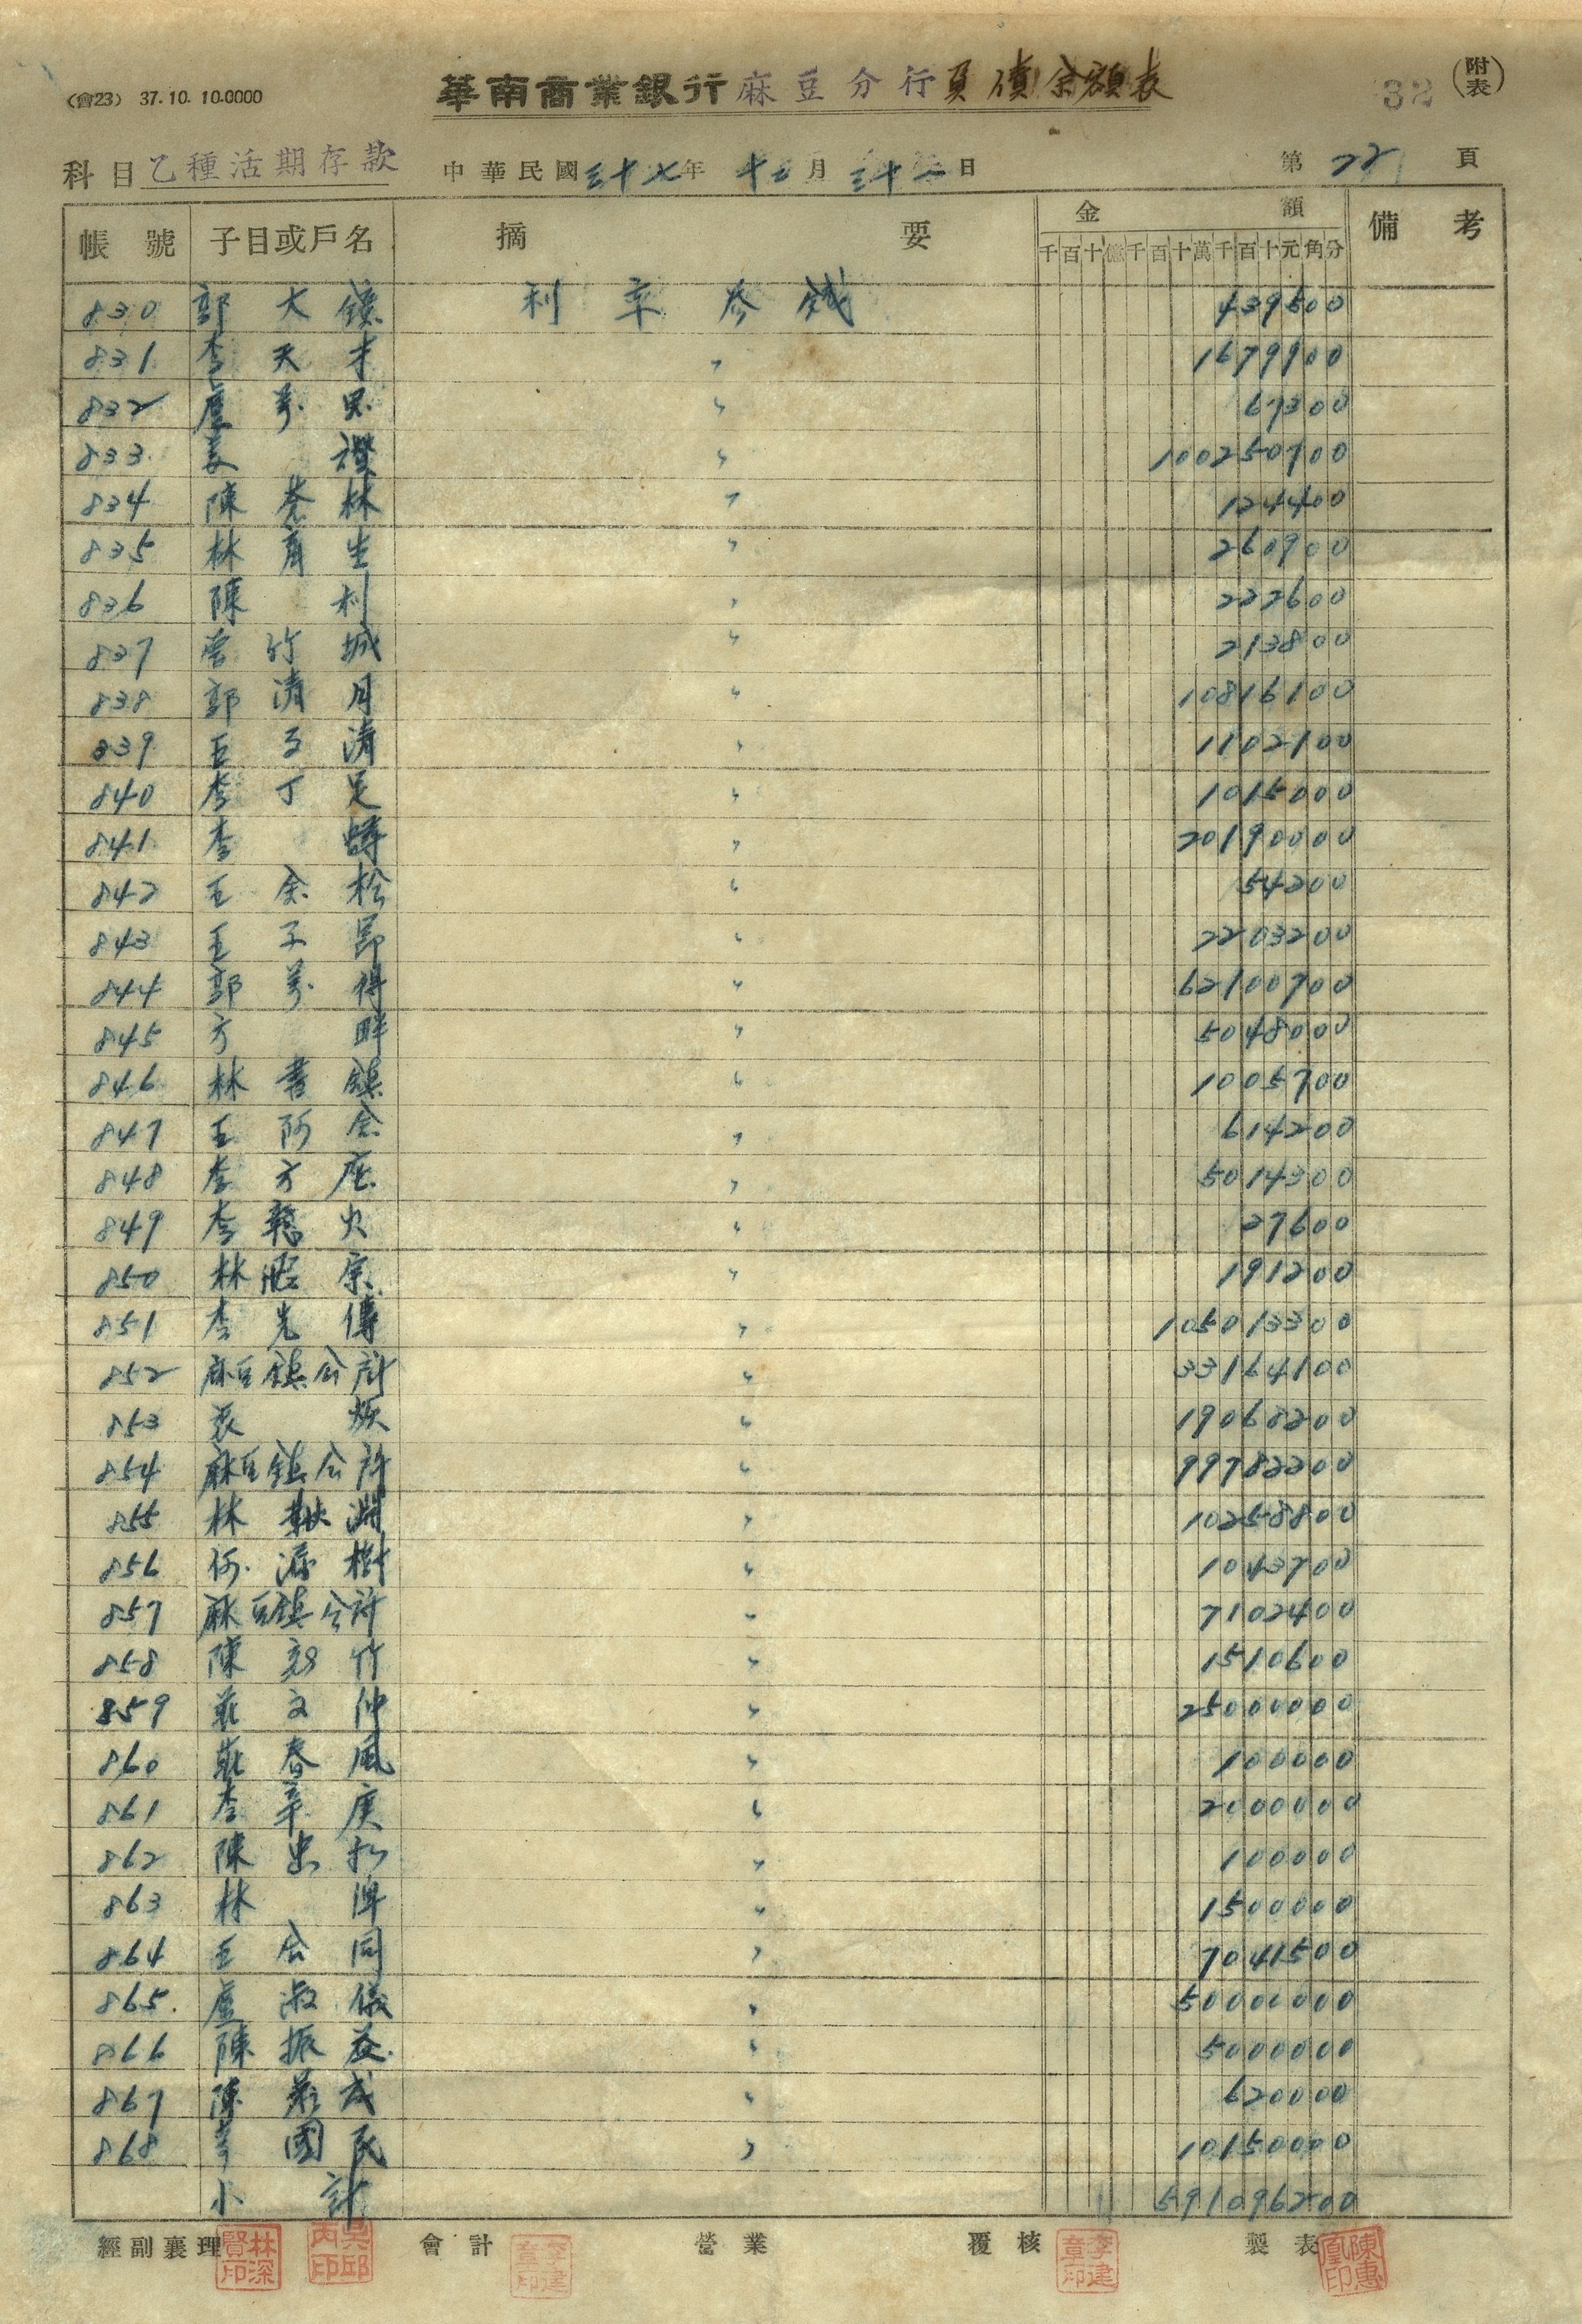 (會23) 37.10.10.0000
華南商業銀行麻豆分行負債余額表
32 (附表)
科目 乙種活期存款 中華民國三十七年十二月三十一日 第22頁
帳號 子目或戶名 摘要 金額 備考
千百十億千百十萬千百十元角分
830 郭大鎮 利率參錢 439500
831 李天才 〃 1679900
832 盧萬 〃 67300
833 〃 100250700
834 陳 林 〃 124400
835 林 生 〃 260900
836 陳利 〃 222600
837 曾竹城 〃 213800
838 郭清月 〃 10816100
839 王 清 〃 1102100
840 李丁足 〃 1015000
841 李 〃 20190000
842 王金松 〃 54200
843 王子 〃 2203200
844 郭萬得 〃 62100700
845 方畔 〃 5048000
846 林書鎮 〃 1005700
847 王阿金 〃 614200
848 李方 〃 5014300
849 李 火 〃 27600
850 林 宗 〃 191200
851 李先傳 〃 105013300
852 麻豆鎮公所 〃 33164100
853 〃 19068200
854 麻豆鎮公所 〃 99782200
855 林 淵 〃 10258800
856 何 樹 〃 1043700
857 麻豆鎮公所 〃 7102400
858 陳 竹 〃 1510600
859 莊文仲 〃 25000000
860 莊春風 〃 100000
861 李辛庚 〃 2000000
862 陳忠 〃 100000
863 林 〃 1500000
864 王 同 〃 7041500
865 盧淑儀 〃 50000000
866 陳振益 〃 5000000
867 陳 成 〃 620000
868 國民 〃 10150000
小計 591096200
經副襄理 會計 營業 覆核 製表
林深賢印 李建章印 李建章印 陳惠凰印